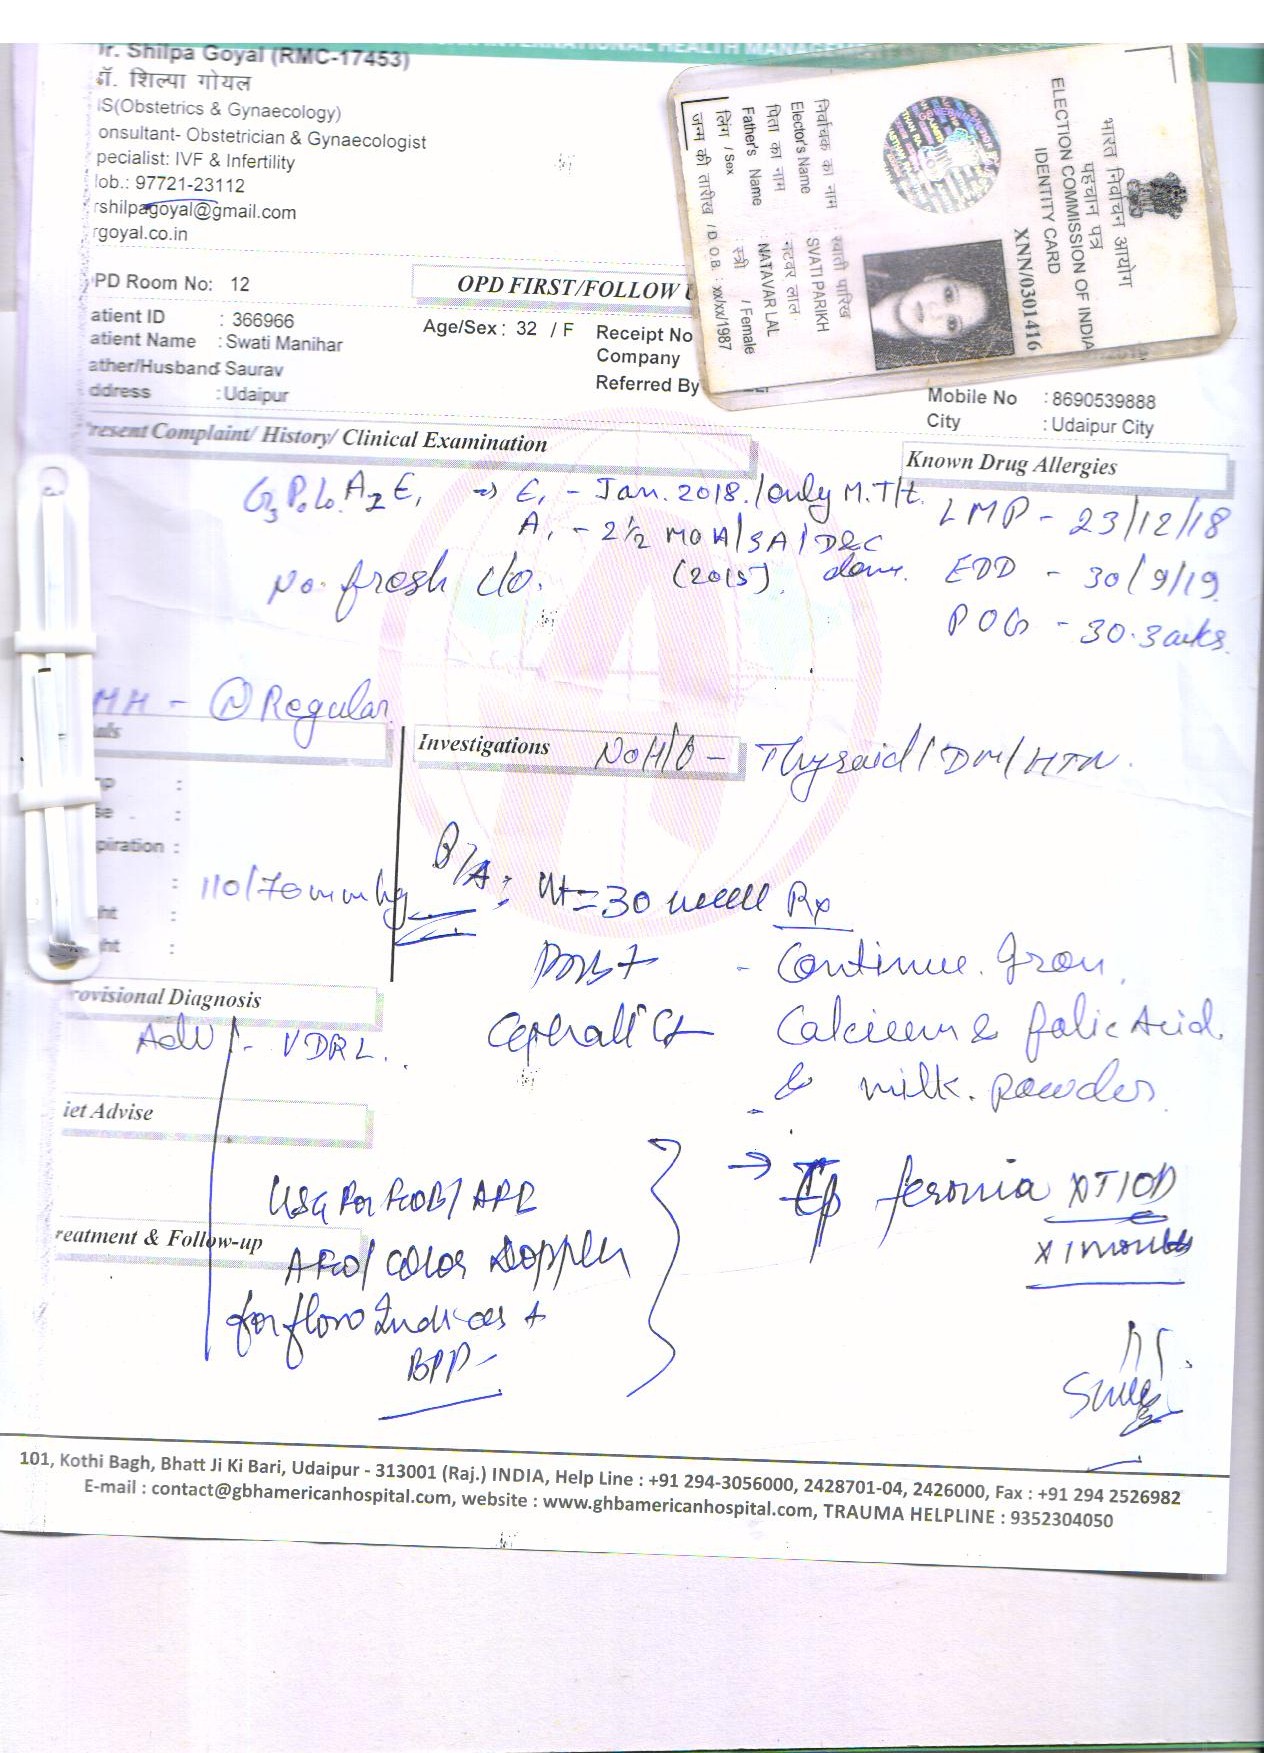 INTERNATIONAL HEALTH MANAGEMENT
r. Shilpa Goyal (RMC-17453)
डॉ. शिल्पा गोयल
IS(Obstetrics & Gynaecology)
onsultant- Obstetrician & Gynaecologist
pecialist: IVF & Infertility
lob.: 97721-23112
rshilpagoyal@gmail.com
rgoyal.co.in
PD Room No: 12
OPD FIRST/FOLLOW U
atient ID : 366966
atient Name : Swati Manihar
ather/Husband Saurav
ddress : Udaipur
Age/Sex : 32 / F
Receipt No
Company
Referred By
Mobile No : 8690539888
City : Udaipur City
भारत निर्वाचन आयोग
पहचान पत्र
ELECTION COMMISSION OF INDIA
IDENTITY CARD
XNN/0301416
निर्वाचक का नाम : स्वाती पारिख
Elector's Name : SVATI PARIKH
पिता का नाम : नटवर लाल
Father's Name : NATAVAR LAL
लिंग / Sex स्त्री / Female
जन्म की तारीख / D.O.B. : xx/xx/1987
resent Complaint/ History/ Clinical Examination
Known Drug Allergies
G3 P0 L0 A2 E1 ⇒ E1 - Jan. 2018 / only M.T/t.
A1 - 2½ MOA/SA/D&C
(2015) done.
No fresh c/o.
LMP - 23/12/18
EDD - 30/9/19
POG - 30.3 wks.
MH - (N) Regular
Investigations
No H/O - Thyroid/DM/HTN.
piration :
: 110/70 mmhg
P/A : Ut = 30 week
Cephalic
Rx
- Continue Iron,
Calcium & folic Acid
& milk powder
rovisional Diagnosis
Adv - VDRL.
iet Advise
USG For
reatment & Follow-up
Color Doppler
for flow Indices +
BPP
→ feronia XT 1OD
x 1 month
101, Kothi Bagh, Bhatt Ji Ki Bari, Udaipur - 313001 (Raj.) INDIA, Help Line : +91 294-3056000, 2428701-04, 2426000, Fax : +91 294 2526982
E-mail : contact@gbhamericanhospital.com, website : www.ghbamericanhospital.com, TRAUMA HELPLINE : 9352304050